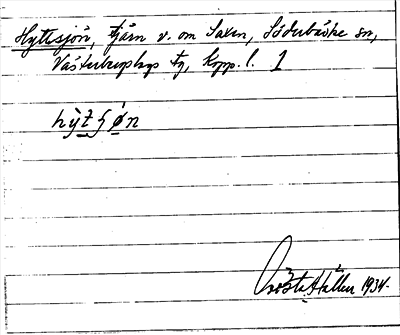 Hyttsjön, tjärn v. om Saxen, Söderbärke sn,
Västerbergslags tg, Kopp. l. 1
hỳt̠ʃǿ̠n
Gösta Hállen 1934.